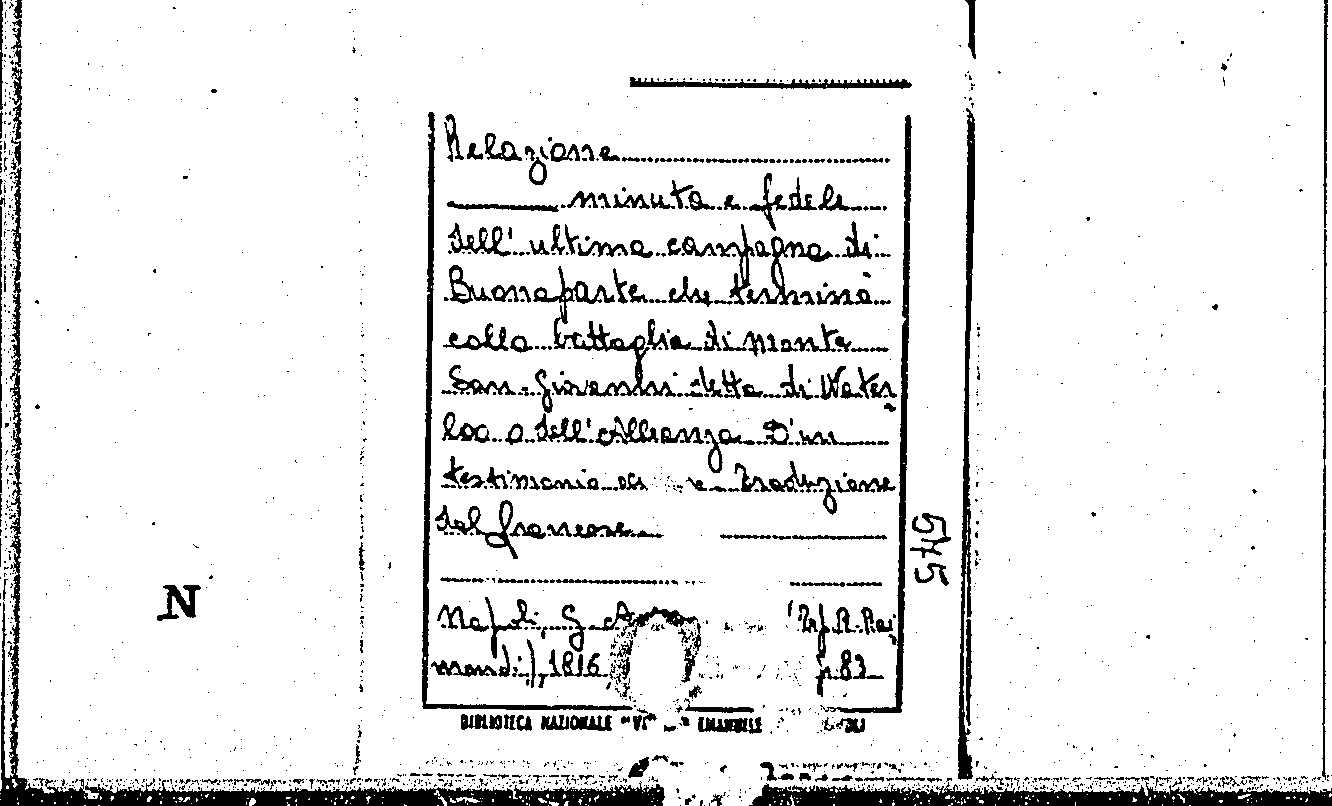 Relazione
minuta e fedele
dell' ultima campagna di
Buonaparte che terminò
colla battaglia di Monte
San-Giovanni detta di Water
loo o dell'Alleanza D'un
testimonio e Traduzione
dal francese
545
N
Napoli, G.
mondi), 1816 p. 83
BIBLIOTECA NAZIONALE EMANUELE